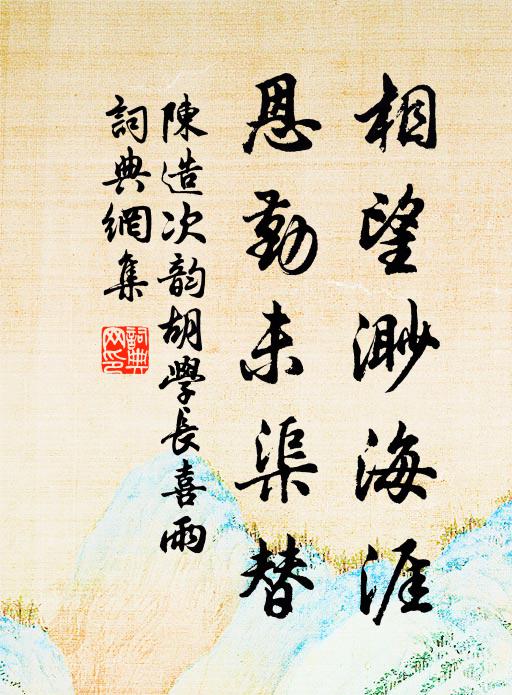 相望渺海涯
恩勤未渠替
陳造次韵胡學長喜雨
詞典網集
詞典
网印